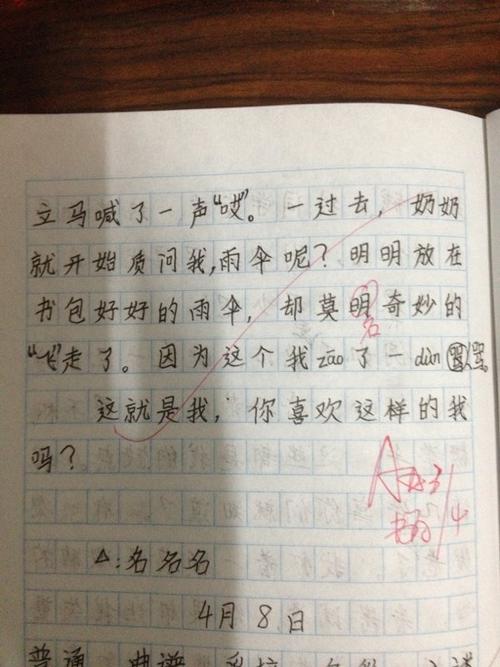 立马喊了一声“哎”。一过去，奶奶
就开始质问我，雨伞呢？明明放在
书包好好的雨伞，却莫明奇妙的
名
“飞”走了。因为这个我zāo了一dùn骂。
这就是我，你喜欢这样的我
吗？
A
△：名名名
4月8日